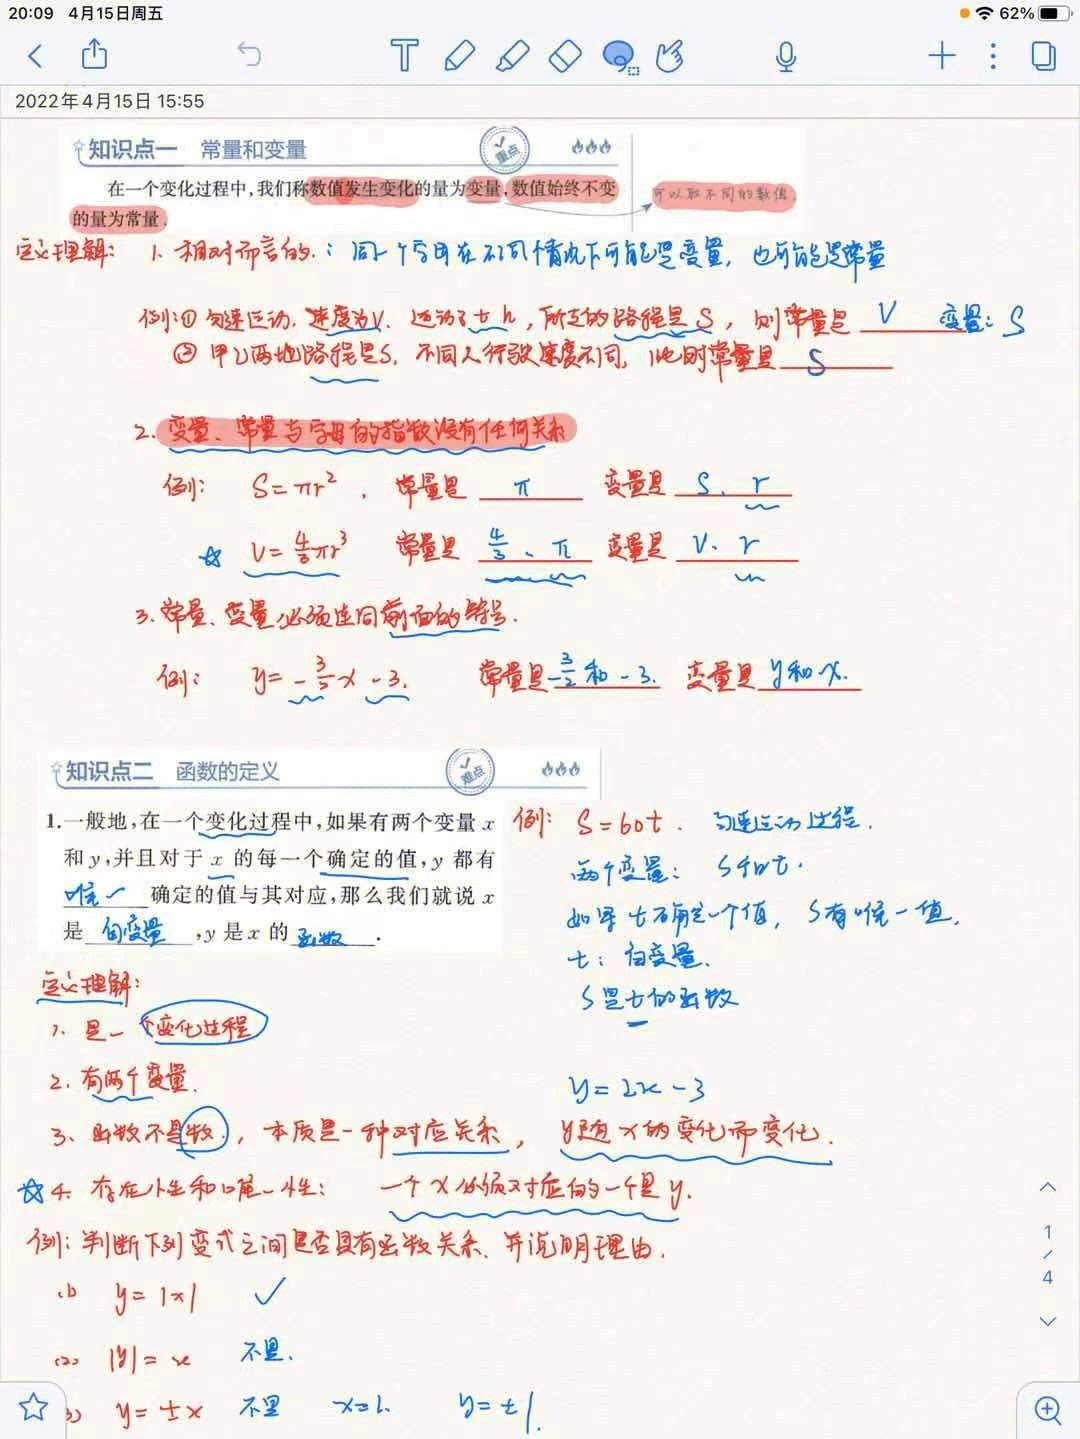 20:09 4月15日周五 62%
2022年4月15日 15:55
知识点一 常量和变量 重点
在一个变化过程中,我们称数值发生变化的量为变量,数值始终不变
可以取不同的数值.
的量为常量.
定义理解: 1. 相对而言的.: 同一个字母在不同情况下可能是变量, 也可能是常量
例:① 匀速运动. 速度为V. 运动了t h, 所走的路程是S, 则常量是 V 变量: S
② 甲乙两地路程是S, 不同人行驶速度不同, 此时常量是 S
2. 变量、常量与字母的指数没有任何关系
例: S=πr², 常量是 π 变量是 S、r
☆ V=4/3πr³ 常量是 4/3、π 变量是 V、r
3. 常量、变量必须连同前面的符号.
例: y=-3/2x-3. 常量是-3/2和-3. 变量是 y和x.
知识点二 函数的定义 难点
1.一般地,在一个变化过程中,如果有两个变量x
和y,并且对于x的每一个确定的值,y都有
唯一确定的值与其对应,那么我们就说x
是 自变量 ,y是x的 函数 .
例: S=60t. 匀速运动过程.
两个变量: S和t.
如果t确定一个值, S有唯一值.
t: 自变量.
S是t的函数
定义理解:
1. 是一个变化过程
2. 有两个变量.
y=2x-3
3、函数不是数, 本质是一种对应关系, y随x的变化而变化.
☆4. 存在性和唯一性: 一个x必须对应的一个是y.
例: 判断下列变式之间是否具有函数关系, 并说明理由.
(1) y=|x| ✓
(2) |y|=x 不是.
3) y=±x 不是 x=1. y=±1.
1/4